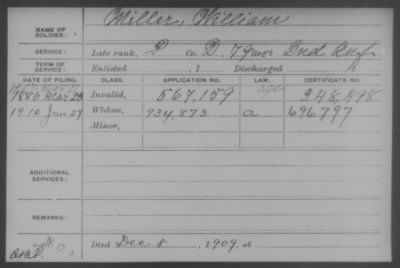 Miller, William
NAME OF SOLDIER:
SERVICE: Late rank, P Co. D, 79 Ind. Inf.
TERM OF SERVICE: Enlisted , 1 Discharged
DATE OF FILING. CLASS. APPLICATION NO. LAW. CERTIFICATE NO.
1886 Mar 23 Invalid, 567,159 348,498
1910 Jan 29 Widow, 934,873 a 696797
Minor,
ADDITIONAL SERVICES:
REMARKS:
Died Dec 8, 1909, at